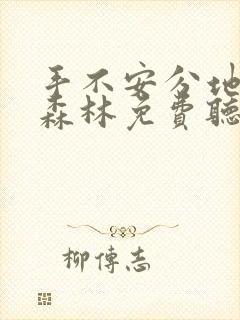 手不安分地
森林免费聽
柳傳志